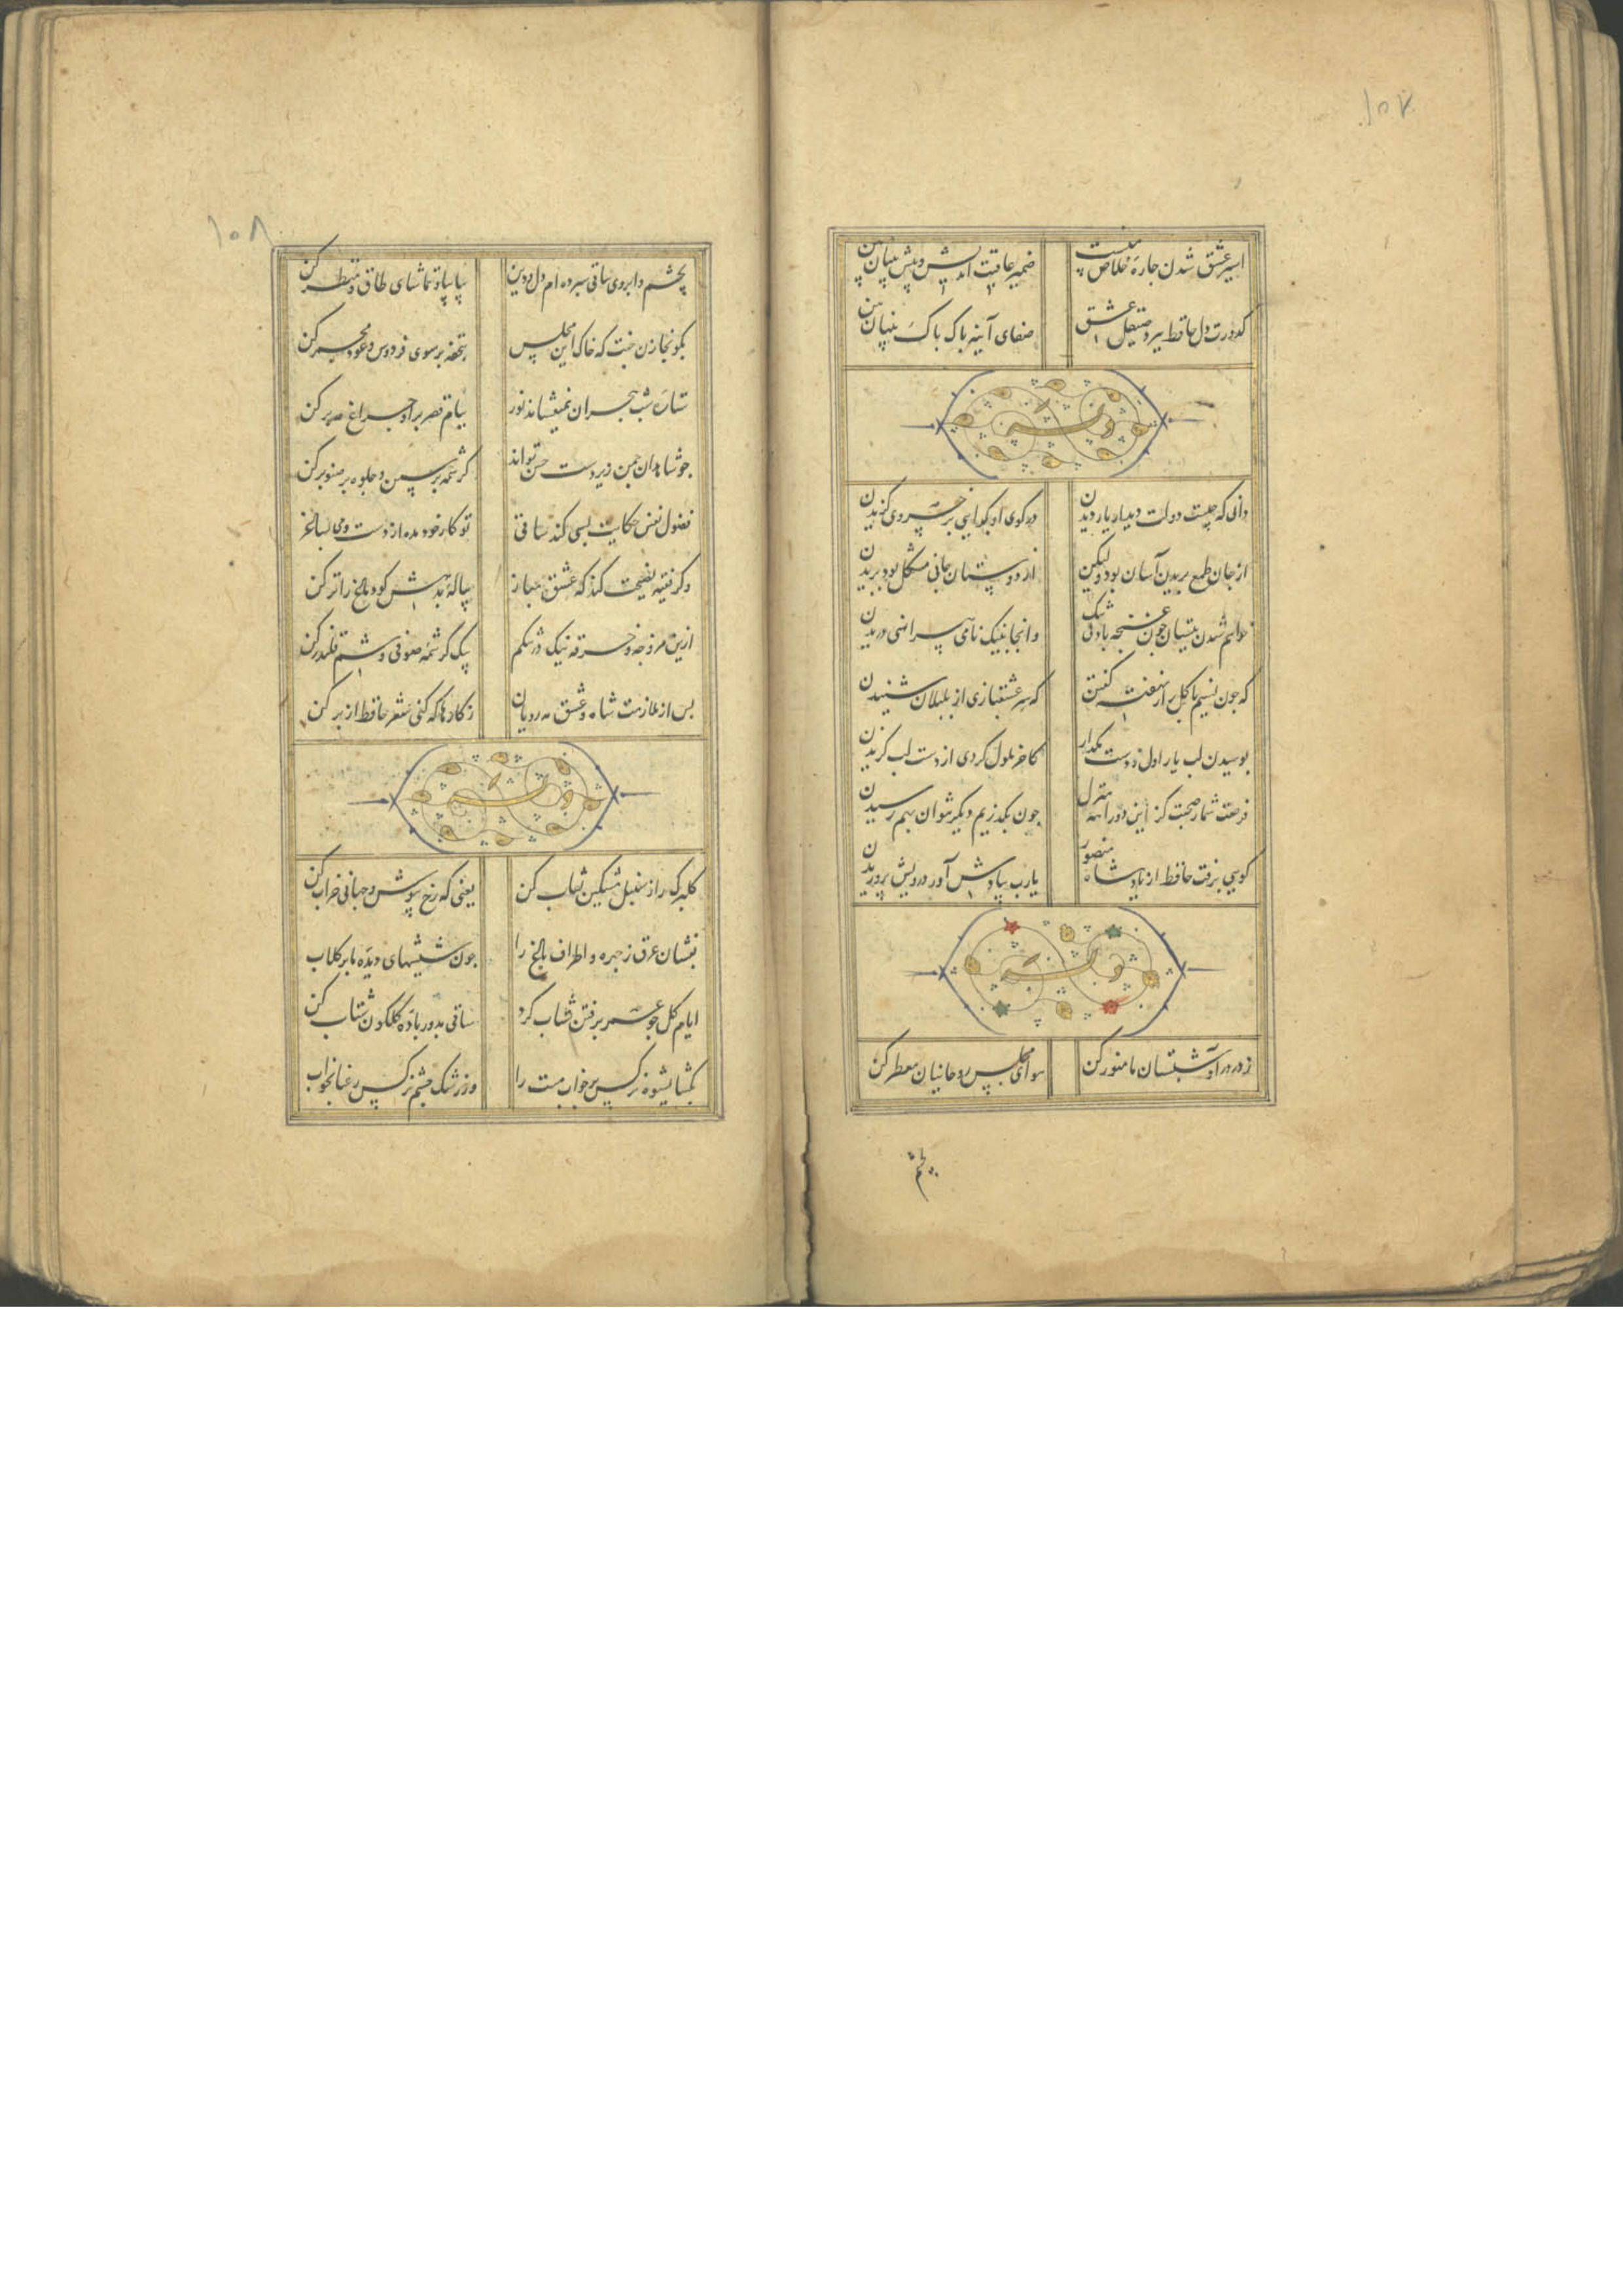 ۱۰۷
اسیر عشق شدن چاره خلاص منست
ضمیر عاقبت اندیش پیش بینان بین
کدورت دل حافظ ببرد صیقل عشق
صفای آینه پاک پاک بینان بین
وله
دانی که چیست دولت دیدار یار دیدن
در کوی او گدایی بر خسروی گزیدن
از جان طمع بریدن آسان بود ولیکن
از دوستان جانی مشکل بود بریدن
خواهم شدن ببستان چون غنچه با دل تنگ
وانجا بنیک نامی پیراهنی دریدن
که چون نسیم با گل راز نهفته گفتن
که سر عشقبازی از بلبلان شنیدن
بوسیدن لب یار اول ز دست مگذار
کاخر ملول گردی از دست لب گزیدن
فرصت شمار صحبت کز این دو راهه منزل
چون بگذریم دیگر نتوان بهم رسیدن
گویی برفت حافظ از یاد شاه منصور
یارب بیادش آور درویش پروریدن
وله
ز در درآ و شبستان ما منور کن
هوای مجلس روحانیان معطر کن
بچشم
۱۰۸
بچشم و ابروی ساقی سپرده ام دل و دین
بیا بیا و تماشای طاق و منظر کن
بگو بخازن جنت که خاک این مجلس
بتحفه بر سوی فردوس و عود مجمر کن
ستاره شب هجران نمیفشاند نور
ببام قصر برآ و چراغ مه بر کن
چو شاهدان چمن زیر دست حسن تواند
کرشمه بر سمن و جلوه بر صنوبر کن
فضول نفس حکایت بسی کند ساقی
تو کار خود مده از دست و می بساغر کن
وگر فقیه نصیحت کند که عشق مباز
پیاله بدهش گو دماغ را تر کن
ازین مزوجه و خرقه نیک در تنگم
بیک کرشمه صوفی وشم قلندر کن
پس از ملازمت شاه و عشق مه رویان
ز کارها که کنی شعر حافظ از بر کن
وله
گلبرگ را ز سنبل مشکین نقاب کن
یعنی که رخ بپوش و جهانی خراب کن
بفشان عرق ز چهره و اطراف باغ را
چون شیشهای دیده ما پر گلاب
ایام گل چو عمر برفتن شتاب کرد
ساقی بدور باده گلگون شتاب کن
بگشا بشیوه نرگس پر خواب مست را
وز رشک چشم نرگس رعنا بخواب